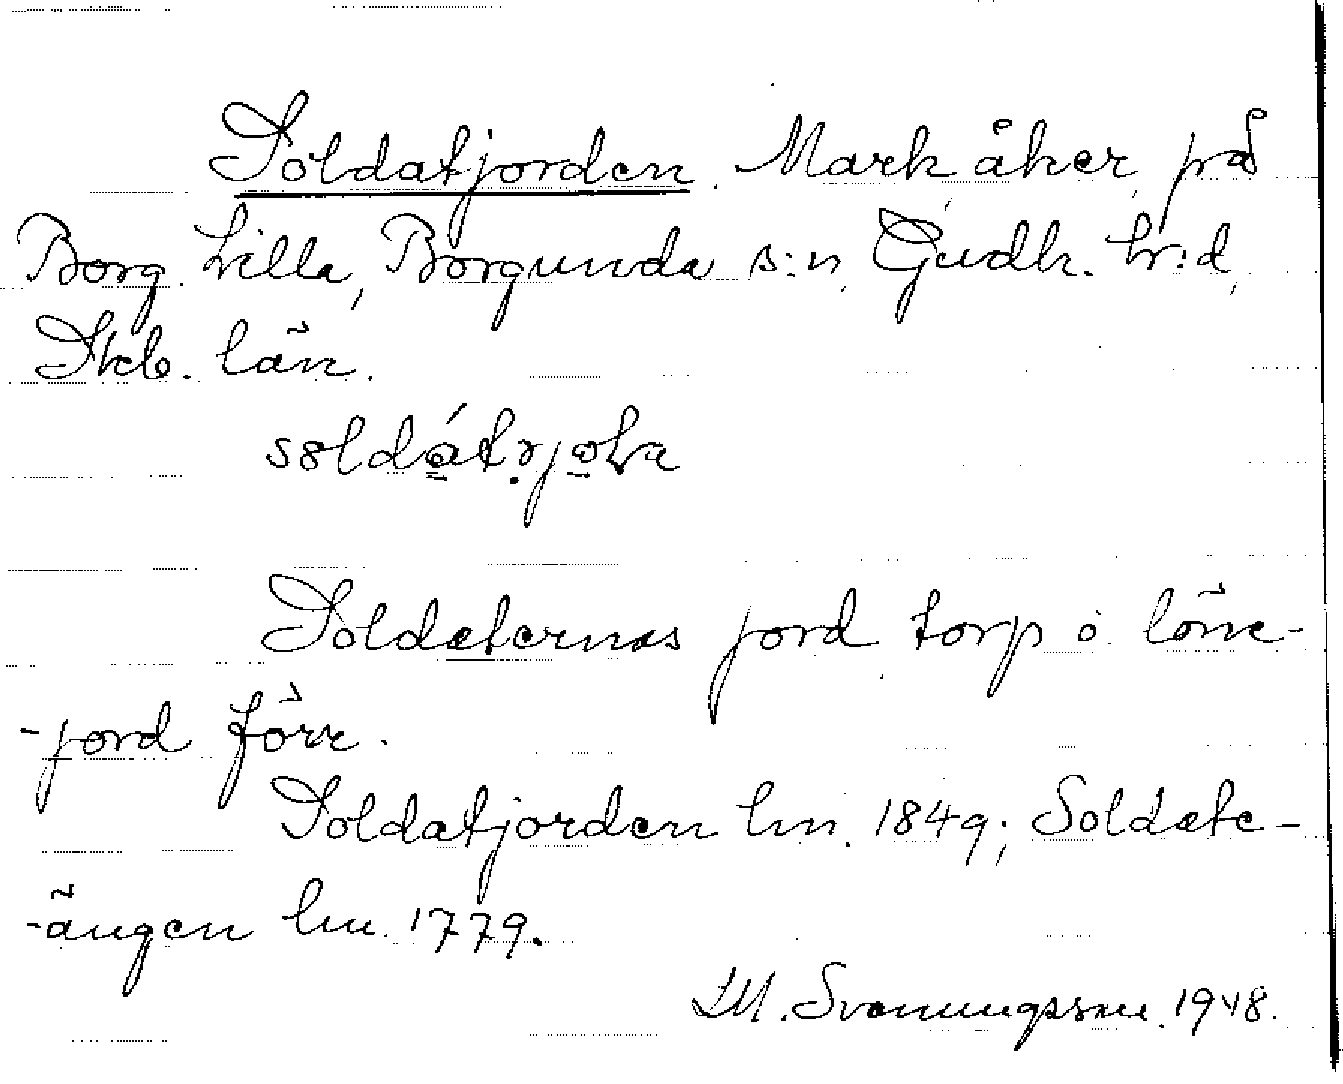 Soldatjorden. Mark, åker, på
Borg. Lilla, Borgunda s:n, Gudh. hr:d,
Skb. län.
Soldaternas jord torp o. löne-
-jord förr.
Soldatjorden lm. 1849; Soldate-
-ängen lm. 1779.
1948.